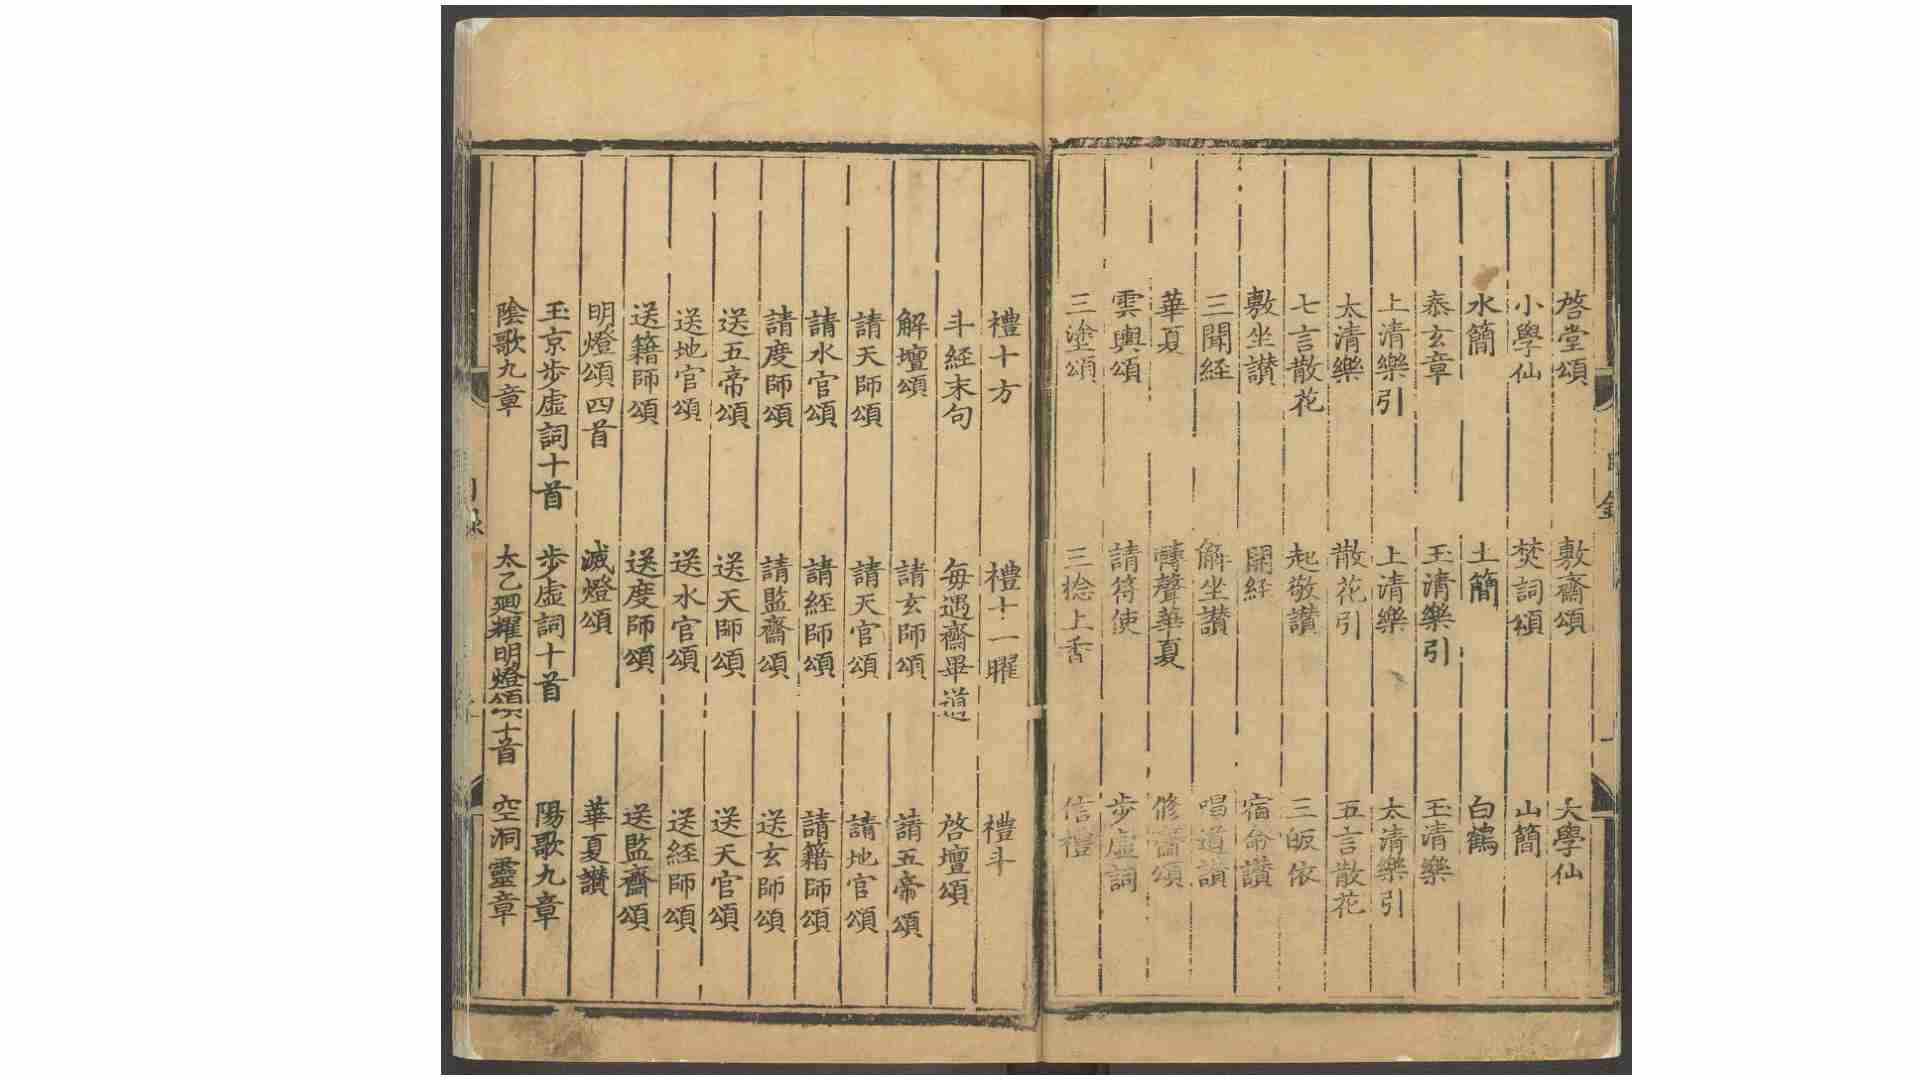 啓堂頌 敷齋頌 大學仙
小學仙 焚詞頌 山簡
水簡 土簡 白鶴
泰玄章 玉清樂引 玉清樂
上清樂引 上清樂 太清樂引
太清樂 散花引 五言散花
七言散花 起敬讃 三皈依
敷坐讃 開經 宿命讃
三聞経 解坐讃 唱道讃
華夏 轉聲華夏 修齋頌
雲輿頌 請符使 步虛詞
三塗頌 三捻上香 信禮
禮十方 禮十一曜 禮斗
斗経末句 每遇齋畢道 啓壇頌
解壇頌 請玄師頌 請五帝頌
請天師頌 請天官頌 請地官頌
請水官頌 請経師頌 請籍師頌
請度師頌 請監齋頌 送玄師頌
送五帝頌 送天師頌 送天官頌
送地官頌 送水官頌 送経師頌
送籍師頌 送度師頌 送監齋頌
明燈頌四首 滅燈頌 華夏讃
玉京步虛詞十首 步虛詞十首 陽歌九章
陰歌九章 太乙廻耀明燈頌十首 空洞靈章